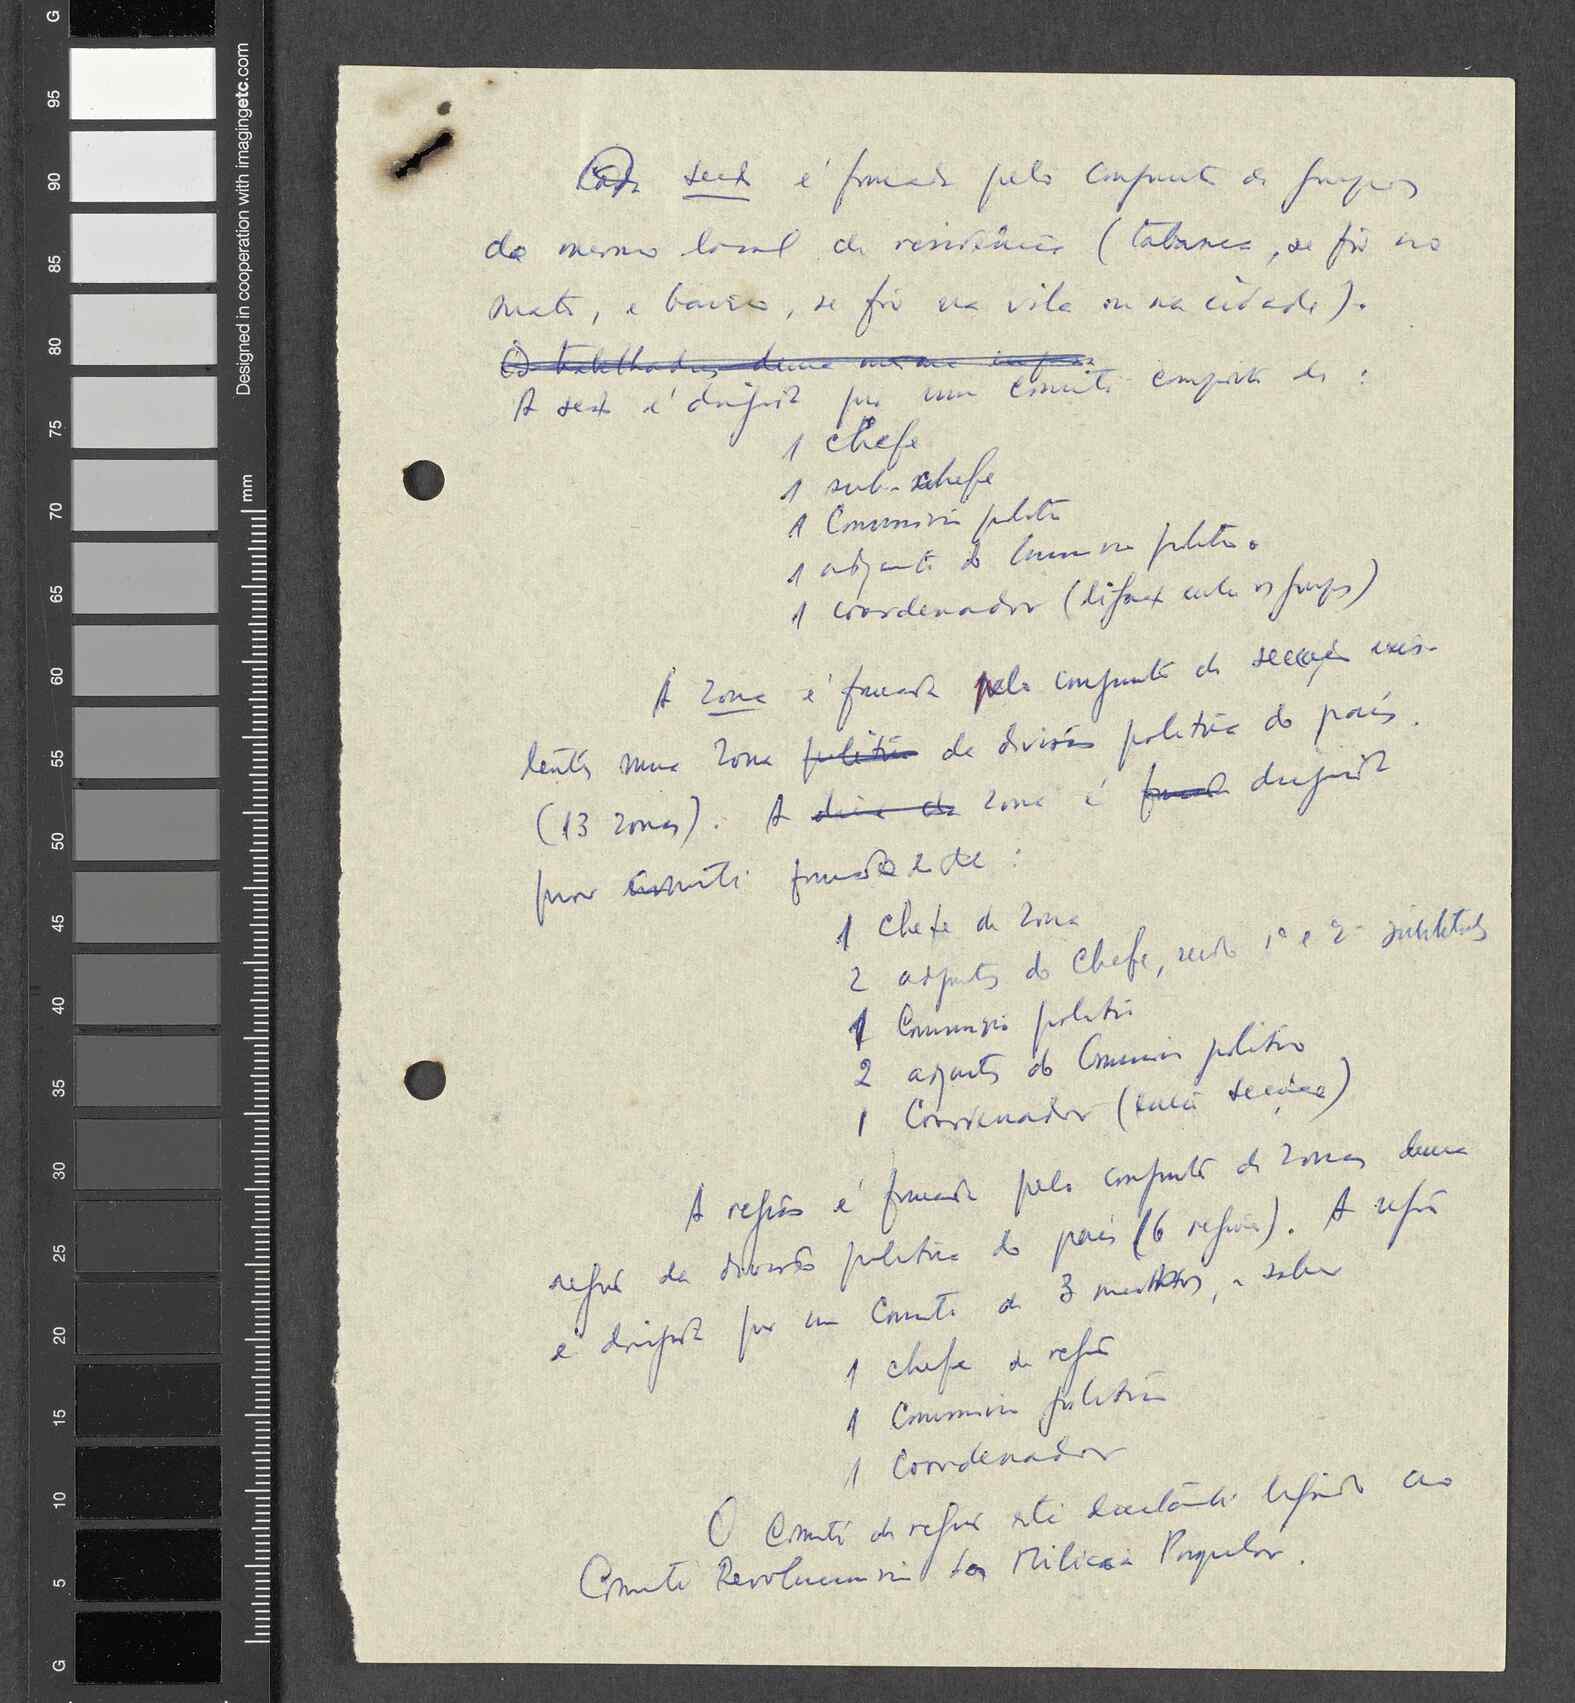 Cada secç é formada pelo conjunto de grupos
do mesmo local de residência (tabanca, se fôr no
mato, e bairro, se fôr na vila ou na cidade).
Os trabalhadores duma mesma
A secç é dirigida por um comité composto de :
1 chefe
1 sub-chefe
1 Comissário político
1 adjunto do Comissário político
1 coordenador (ligação entre os grupos)
A zona é formada pelo conjunto de secções exis-
tentes numa zona política da divisão política do país.
(13 zonas). A zona é formada dirigida
por comité formado de :
1 Chefe de zona
2 adjuntos do Chefe, sendo 1º e 2º substitutos
1 Comissário político
2 adjuntos do Comissário político
1 Coordenador (entre secções)
A região é formada pelo conjunto de zonas duma
região da divisão política do país (6 regiões). A região
é dirigida por um Comité de 3 membros, a saber
1 chefe de região
1 Comissário político
1 Coordenador
O Comité de região está ligado ao
Comité Revolucionário das Milícias Popular.
G
95
90
85
80
75
70
65
60
55
50
45
40
35
30
25
20
15
10
5
G
Designed in cooperation with imagingetc.com
mm